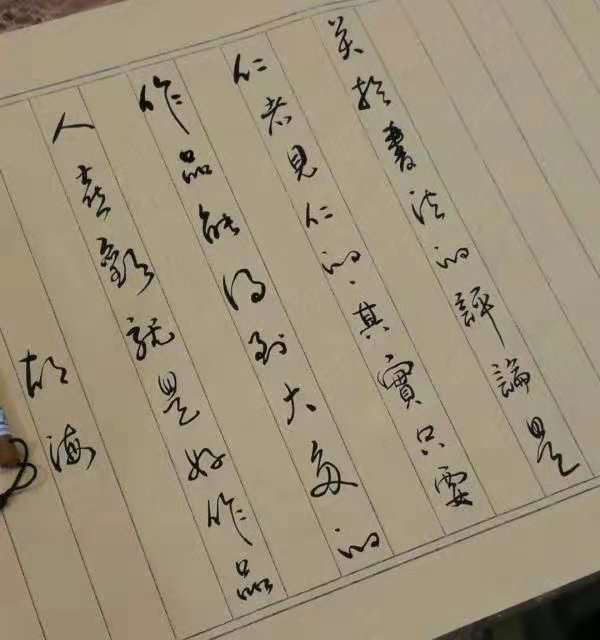 关於书法的評論是
仁者见仁的、其實只要
作品能得到大多的
人喜歡就是好作品
胡海